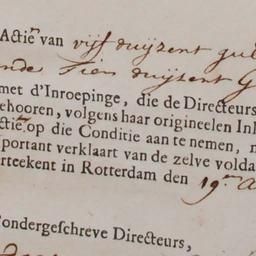 Actien van vijf duijzent gul
ende Tien duijsent G
met d'Inroepinge, die de Directeurs
ehooren, volgens haar origineelen Inl
ctien op die Conditie aan te nemen, m
portant verklaart van de zelve volda
erteekent in Rotterdam den 19.en A
ondergeschreve Directeurs,